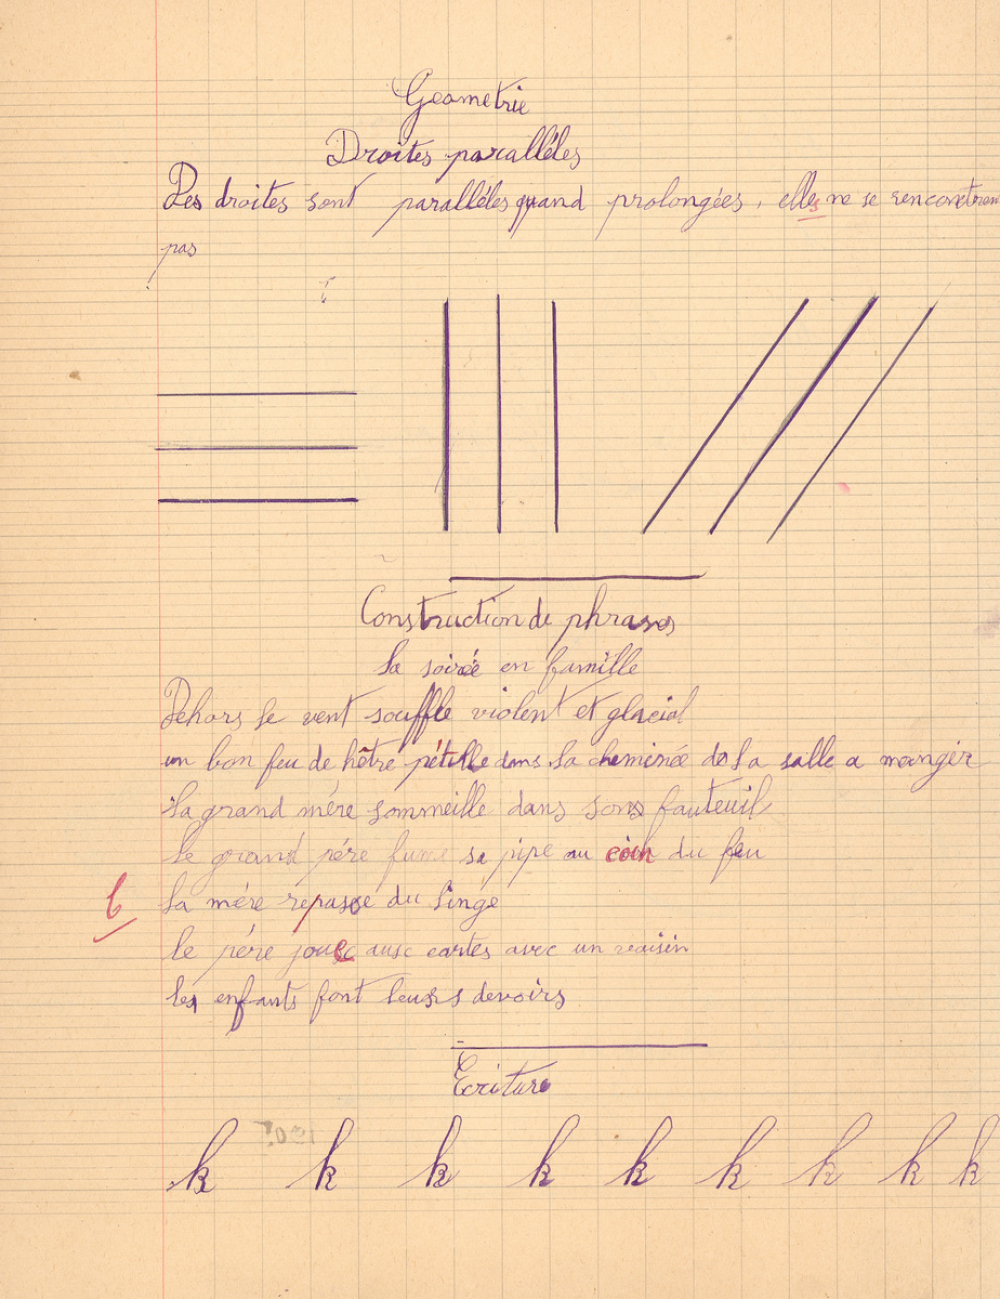 Geometrie
Droites paralléles
Des droites sont paralléles quand prolongées, elles ne se rencontren
pas
Construction de phrases
la soirée en famille
Dehors le vent souffle violent et glacial
un bon feu de hêtre pétille dans la cheminée de la salle a manger
la grand mére sommeille dans sons fauteuil
le grand pére fume sa pipe au coin du feu
6 la mére repasse du linge
le pére joue aux cartes avec un voisin
les enfants font leurs devoirs
Ecriture
k k k k k k k k k